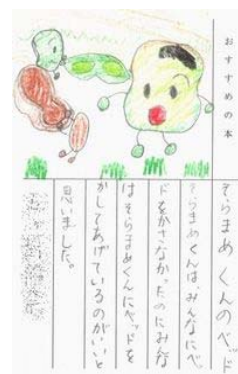 おすすめの本
そらまめくんのベッド
そらまめくんは、みんなにベッ
ドをかさなかったのにみんな
はそらまめくんにベッドを
かしてあげているのがいいと
思いました。